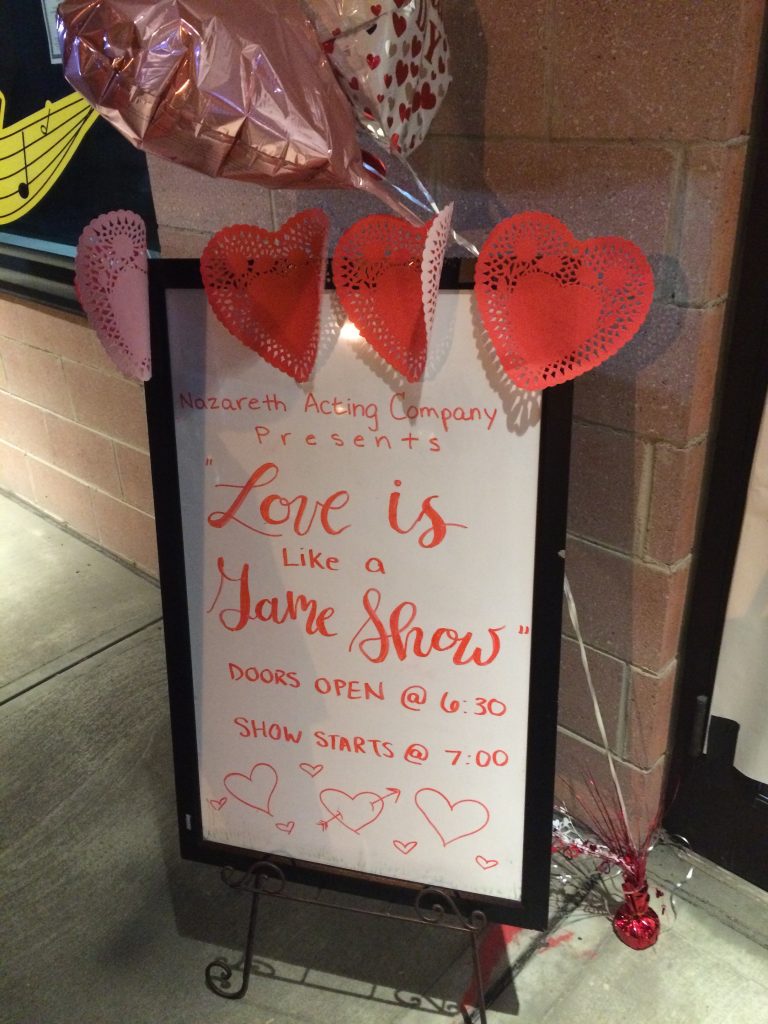 Nazareth Acting Company
Presents
"Love is
Like a
Game Show"
DOORS OPEN @ 6:30
SHOW STARTS @ 7:00